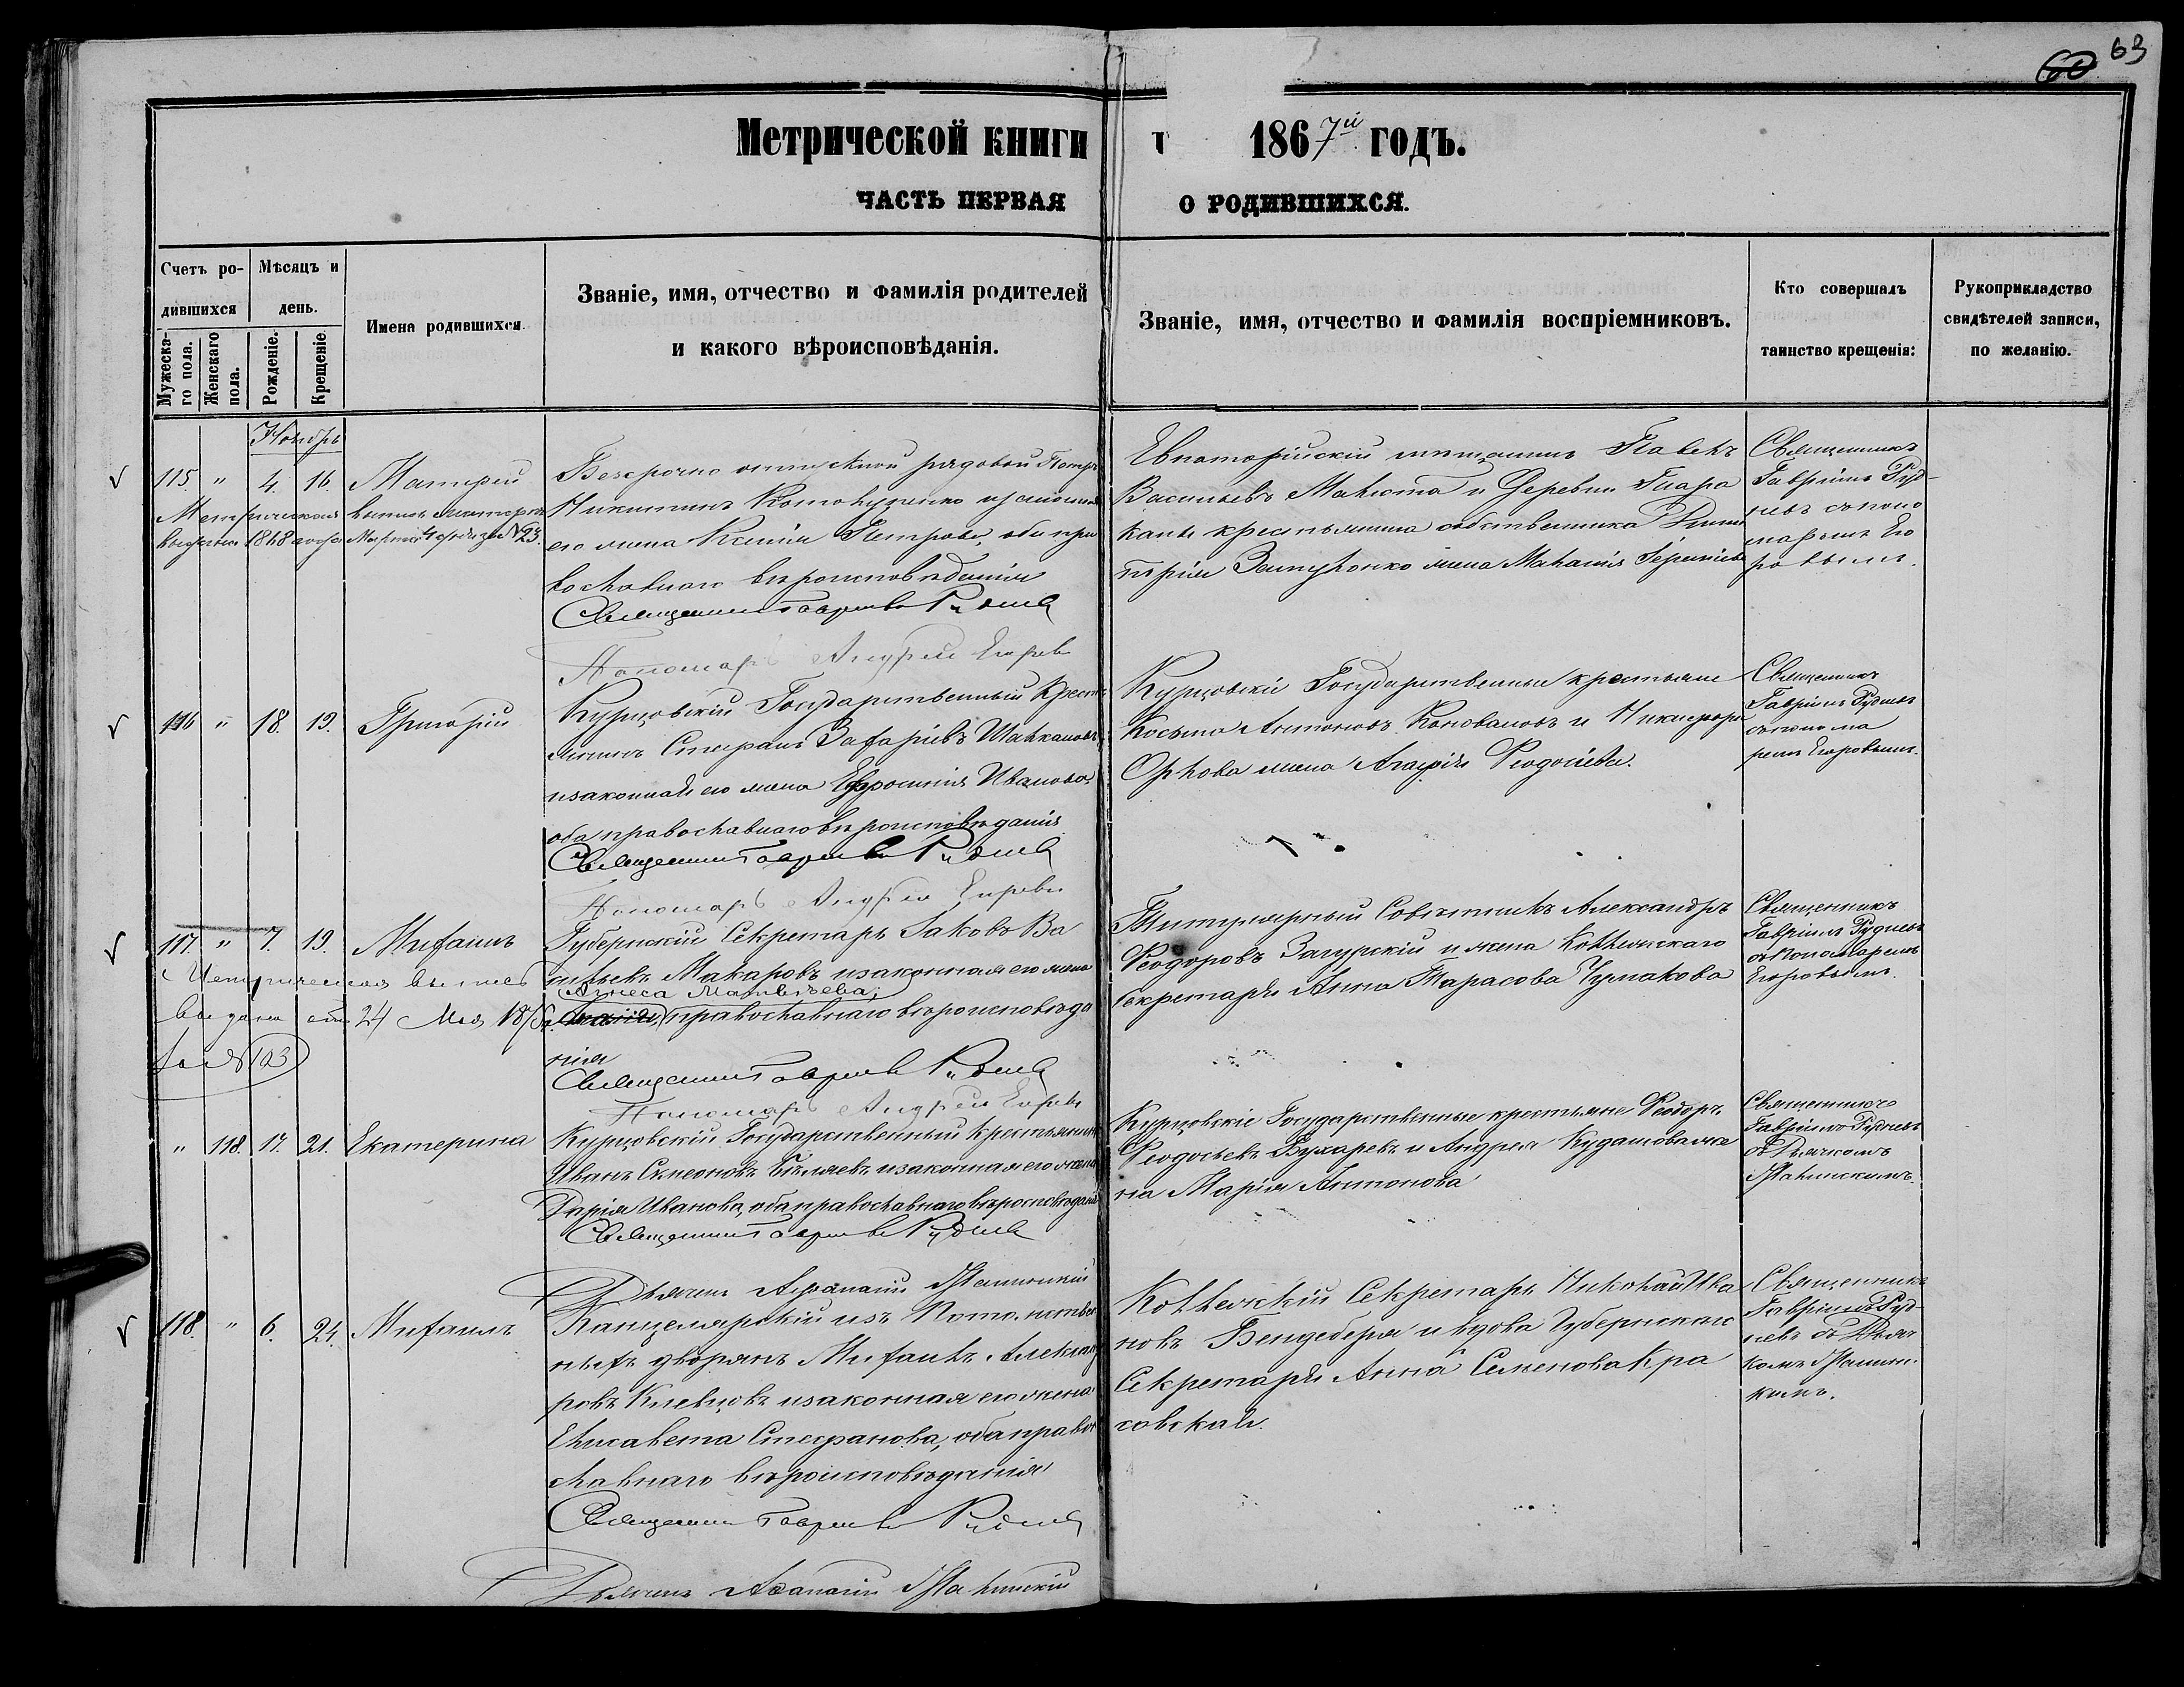 60 63
Метрической книги 1867й годъ.
ЧАСТЬ ПЕРВАЯ О РОДИВШИХСЯ.
Счетъ ро-
дившихся
Мужеска-
го пола.
Женскаго
пола.
Мѣсяцъ и
день.
Рожденіе.
Крещеніе.
Имена родившихся.
Званіе, имя, отчество и фамилія родителей
и какого вѣроисповѣданія.
Званіе, имя, отчество и фамилія воспріемниковъ.
Кто совершалъ
таинство крещенія:
Рукоприкладство
свидѣтелей записи,
по желанію.
Ноябрь
115. " 4. 16.
Безсрочно отпускной рядовой Петръ
Никитинъ
его жена Ксенія Петрова, оба пра
вославнаго вѣроисповѣданія
Священникъ Гавріилъ Рудневъ
Пономарь Андрей Егоровъ
Евпаторійскій мѣщанинъ Павелъ
Васильевъ и деревни
крестьянина собственника
жена
Священникъ
Гавріилъ Руд-
невъ съ поно
маремъ Его
ровымъ.
Метрическая выпись
116 " 18. 19. Григорій
Курцовскій Государственный Кресть
янинъ Стефанъ Захаріевъ
и законная его жена Ефросинія Иванова,
оба православнаго вѣроисповѣданія
Священникъ Гавріилъ Рудневъ
Пономарь Андрей Егоровъ
Курцовскіе Государственные крестьяне
Косьма Антоновъ Коноваловъ и Никифора
Орлова жена Агафія Феодосіева.
Священникъ
Гавріилъ Рудневъ
съ понома
ремъ Егоровымъ.
117. " 7. 19. Михаилъ
Губернскій Секретарь Іаковъ Ва
сильевъ Макаровъ и законная его жена
Агнеса Матвѣева,
православнаго вѣроисповѣда
нія
Священникъ Гавріилъ Рудневъ
Пономарь Андрей Егоровъ
Титулярный Совѣтникъ Александръ
Феодоровъ Загурскій и жена Коллежскаго
Секретаря Анна Тарасова Чумакова
Священникъ
Гавріилъ Рудневъ
съ Пономаремъ
Егоровымъ.
Метрическая выпись
выдана 24 Мая
за № 103
" 118. 17. 21. Екатерина
Курцовскій Государственный крестьянинъ
Иванъ Симеоновъ Бѣляевъ и законная его жена
Дарія Иванова, оба православнаго вѣроисповѣданія
Священникъ Гавріилъ Рудневъ
Дьячекъ Афанасій
Курцовскіе Государственные крестьяне Феодоръ
Феодосьевъ Бухаревъ и Андрея Кудашова же
на Марія Антонова
Священникъ
Гавріилъ Рудневъ
съ Дьячкомъ
118. " 6. 24. Михаилъ
Канцелярскій изъ Потомствен
ныхъ дворянъ Михаилъ Александ
ровъ Киевцовъ и законная его жена
Елисавета Стефанова, оба право
славнаго вѣроисповѣданія
Священникъ Гавріилъ Рудневъ
Дьячекъ Афанасій
Коллежскій Секретарь Николай Ива
новъ Бендеберя и вдова Губернскаго
Секретаря Анна Семенова Кра
совская.
Священникъ
Гавріилъ Руд-
невъ съ Дьяч
комъ